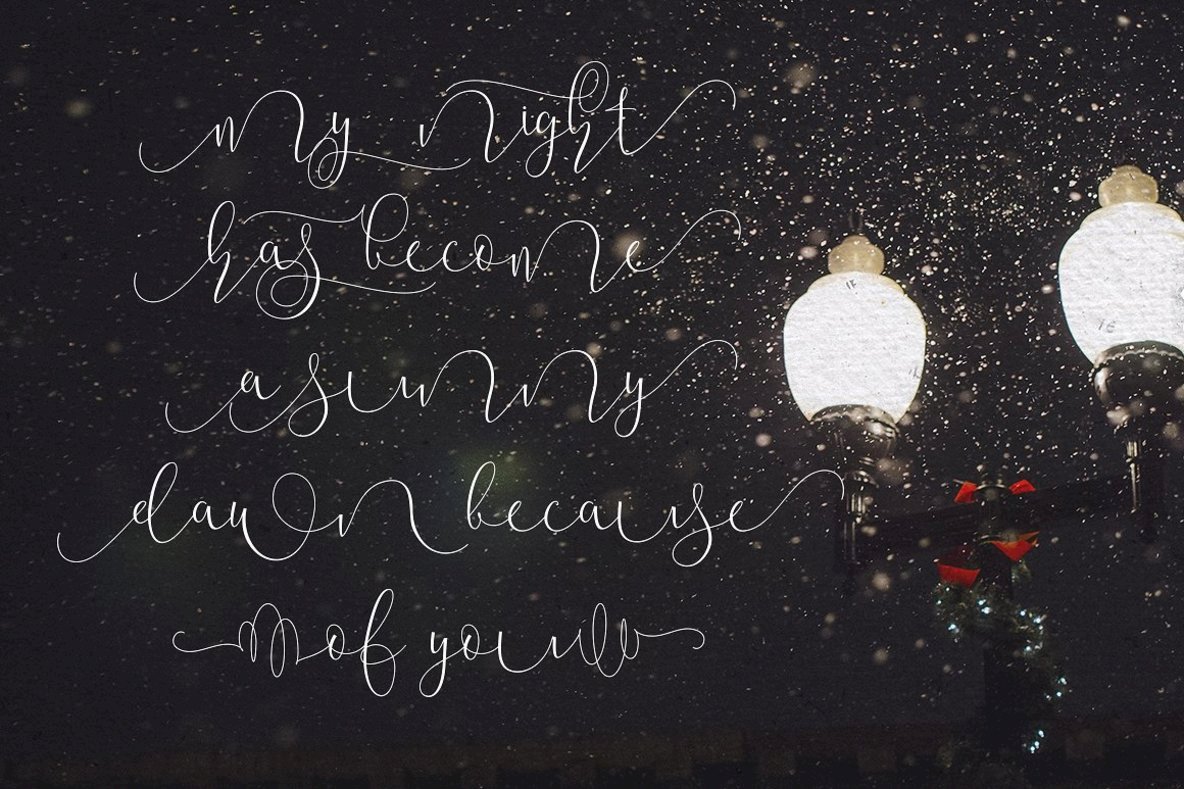 my night
has become
a sunny
dawn because
of you